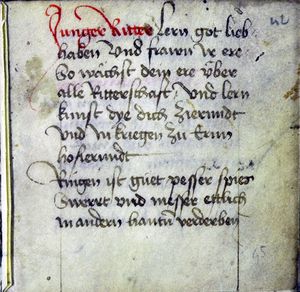 42
Junger Ritter lern got lieb
haben Vnd frawen Ir ere
So wächst dein ere Über
alle Ritterschaft Vnd lern
kunst dye dich Zierendt
Vnd In kriegen Zu Ern
hofierendt
Ringen ist guet pesser spies
Swertt Vnd messer ettlich
In andern handen verderben